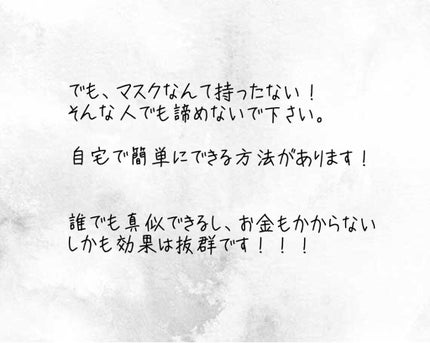 でも、マスクなんて持ったない！
そんな人でも諦めないで下さい。
自宅で簡単にできる方法があります！
誰でも真似できるし、お金もかからない
しかも効果は抜群です！！！